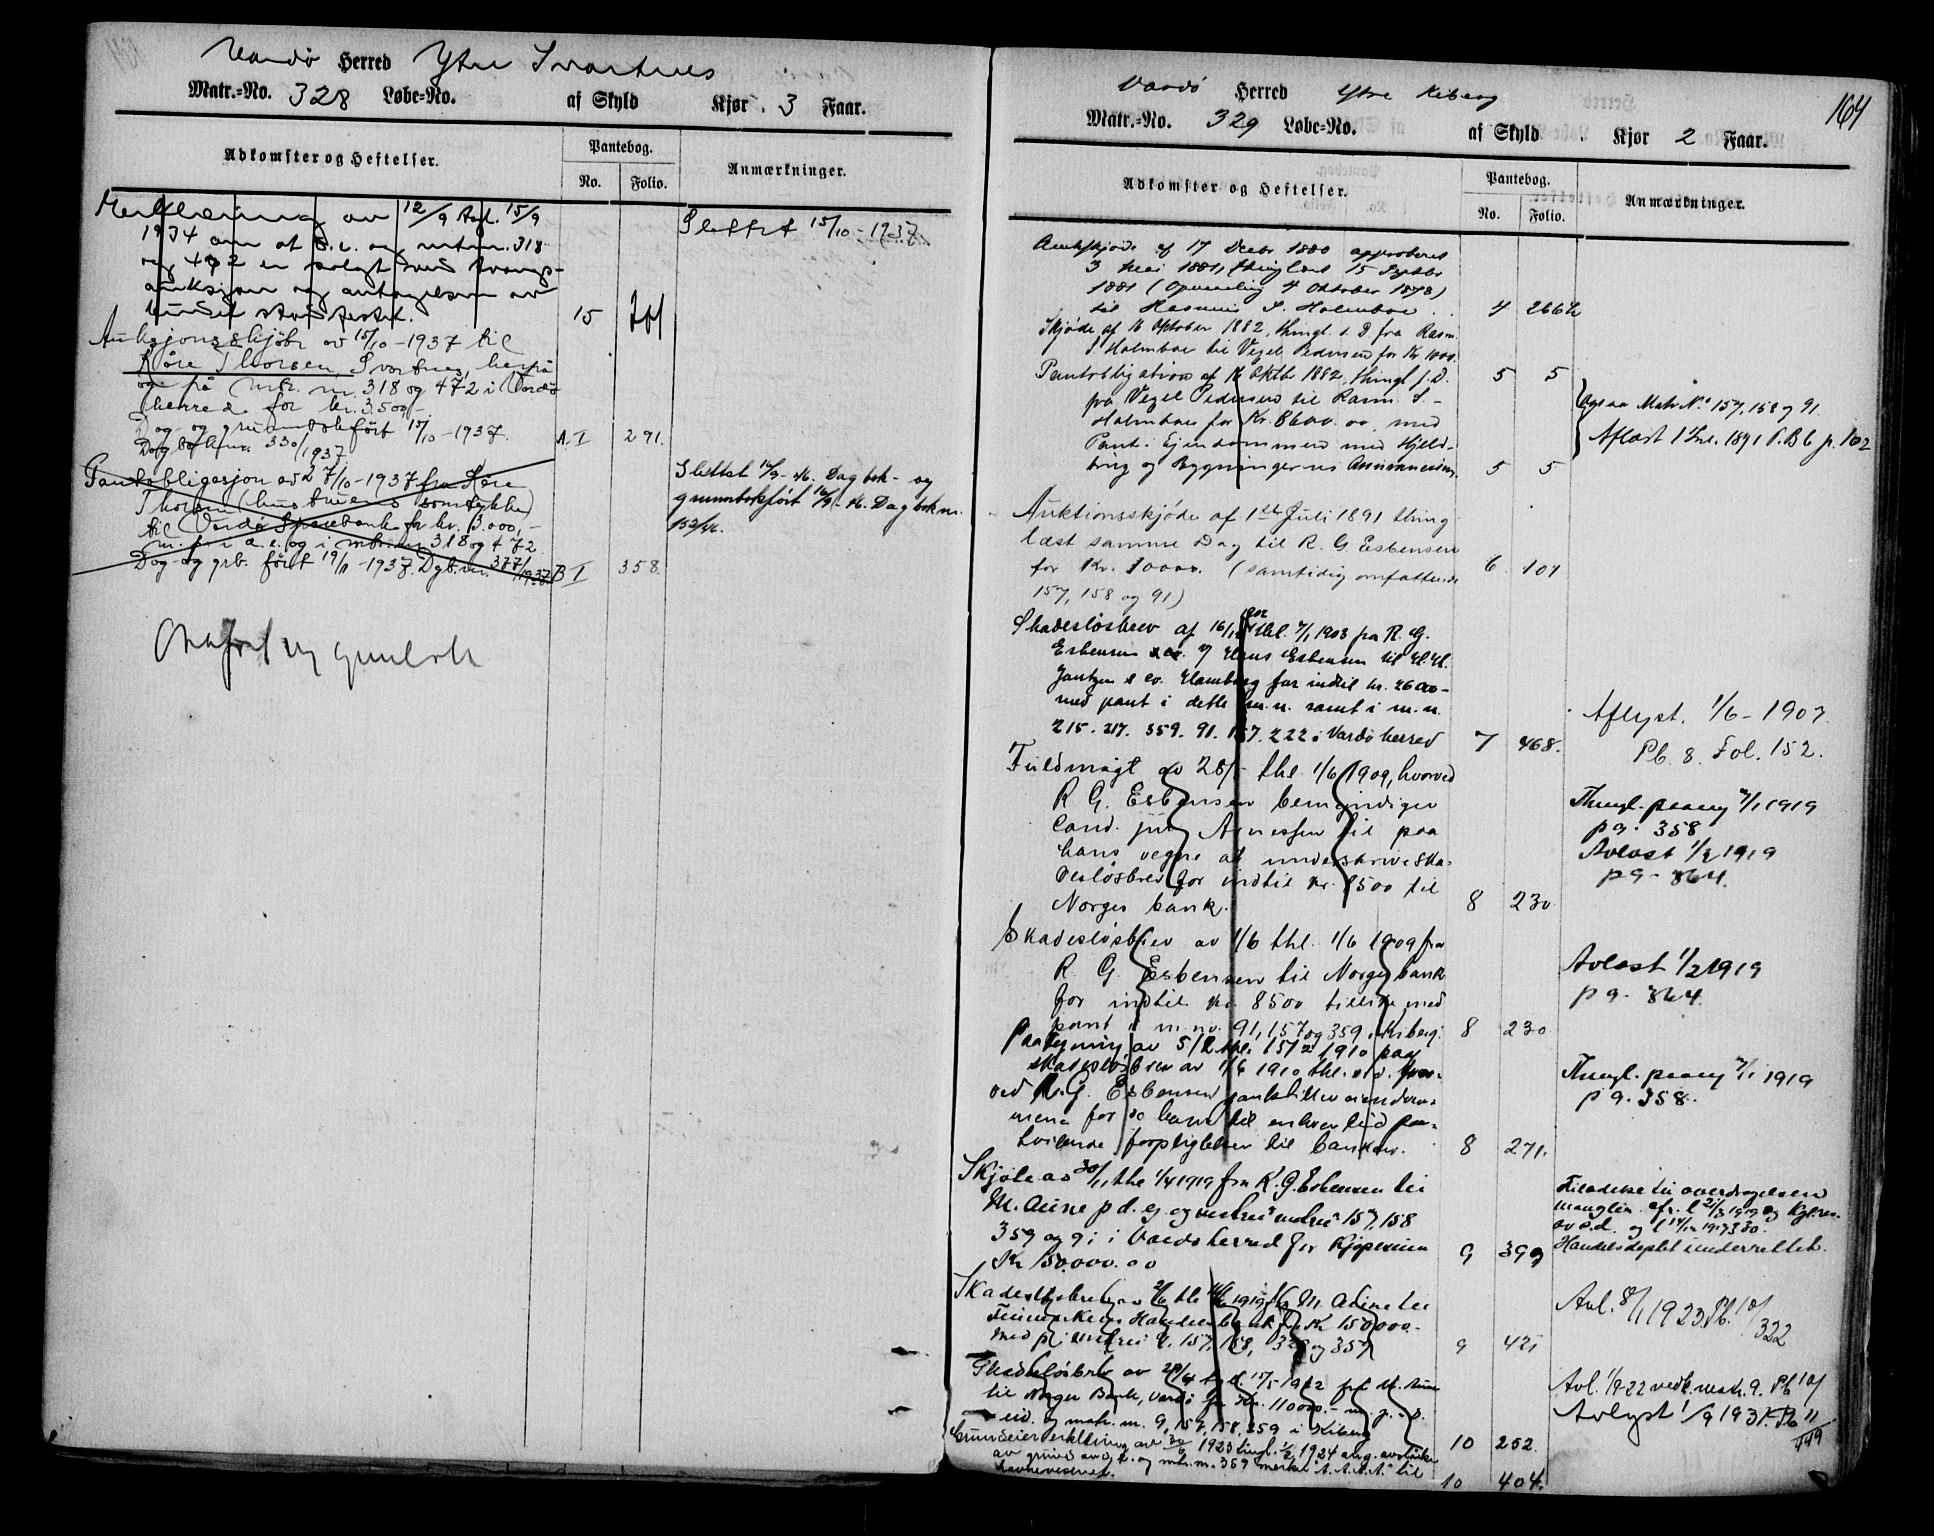 Vardø Herred Ytre Svartnes
Matr.-No. 328 Løbe-No. af Skyld Kjør. 3 Faar.
Adkomster og Heftelser.
Pantebog.
No. Folio.
Anmærkninger.
av 12/9 Tgl. 15/9
1934 om at d.e. og mtrn. 318
og 472 er solgt ved tvangs-
auksjon og antagelsen av
budet
15
Slettet 15/10-1937.
Auksjonsskjøte av 15/10-1937 til
Kåre Thorsen, Svartnes, herpå
og på mtr. nr 318 og 472 i Vardø
herred for kr. 350,-
Dag- og grunnbokført 15/10-1937.
Dagboknr. 330/1937
A.I 291.
Pantobligasjon av 27/10-1937 fra Kåre
Thorsen (hustrues samtykke)
til Vardø Sparebank for kr. 3.000,-
m. p. i d.e. og i mtr. nr 318 og 472
Dag- og grb. ført 19/11-1937. Dgb.nr. 377/1937
B I 358.
Slettet 16/9-46. Dagbok- og
grunnbokført 16/9-46. Dagboknr.
152/46.
164
Vardø Herred Ytre Kiberg
Matr.-No. 329 Løbe-No. af Skyld Kjør 2 Faar.
Adkomster og Heftelser.
Pantebog.
No. Folio.
Anmærkninger.
Amtskjøde af 17 Decbr 1880 approberet
3 Mai 1881, thinglæst 15 Septbr
1881 (Opmaaling 4 Oktober 1878)
til Rasmus S. Holmboe 4 266b
Skjøde af 16 Oktober 1882, thingl. s. D fra Rasm.
S Holmboe til Vegel Pedersen for Kr 1000. 5 5
Pantobligation af 16 Oktbr 1882, thingl s. D.
fra Vegel Pedersen til Rasm. S.
Holmboe for Kr 8600.00, med
Pant i Ejendommen med Hjeld-
brug og Bygningernes Assurancesum. 5 5
Ogsaa Matr No 157, 158 og 91.
Aflæst 1 Jul. 1891 P.B 6 p. 102
Auktionsskjøde af 1ste Juli 1891 thing-
læst samme Dag til R. G Esbensen
for Kr. 10000. (samtidig omfattende
157, 158 og 91) 6. 101
Skadesløsbrev af 16/12 1902 thl. 7/1 1903 fra R. G.
Esbensen & Co. v/ Hans Esbensen til H. H.
Jantzen & Co. Hamburg for indtil kr. 26000-
med pant i dette m.n. samt i m.n.
215. 217. 359. 91. 157. 222 i Vardø herred 7 468.
Aflyst. 1/6-1907.
Pb. 8. Fol. 152.
Fuldmagt av 28/5 thl. 1/6 1909, hvorved
R. G. Esbensen bemyndiger
Cand. jur Arnessen til paa
hans vegne at underskrive ska-
desløsbrev for indtil kr. 8500 til
Norges bank. 8 230
Thingl. paany 7/1 1919
pg. 358
Avlæst 1/2 1919
pg- 364.
Skadesløsbrev av 1/6 thl. 1/6 1909 fra
R. G. Esbensen til Norges bank
for indtil kr. 8500 tillike med
pant i m.no. 91, 157 og 359 i Kiberg. 8 230
Avlæst 1/2 1919
pg. 364.
Paategning av 5/2 thl. 15/2 1910 paa
skadesløsbrev av 1/6 1910 thl. s.d. hvor-
ved R. G. Esbensen pantstiller eiendom-
mene for banken til enhver tid paa-
hvilende forpligtelser til banken. 8 271.
Thingl. paany 7/1 1919
pg. 358.
Skjøte av 30/11 thl 1/4 1919 fra R. G. Esbensen til
M. Aune p d. eg. og 157, 158
359 og 91 i Vardø herred for Kjøpesum
Kr 150.000.00 9 399
Tilladelse til overdragelsen
mangler
Handelsdeptet underrettet.
Skadesløsbrev av thl 1919 fra M. Aune til
Finmarkens Handelsbank for Kr 150000.-
med p. i 9, 157, 158, og 359 9 421
Avl. 8/1 1923. Pb. 10/322
Skadesløsbrev av 28/4 tgl. 15/5 1922 fra M. Aune
til Norges Bank, Vardø for Kr. 110000.- m. p. i d.
eid. og matr. nr. 9, 157, 158, 359 i Kiberg 10 252.
Avl. 1/9-22 vedk. matr. 9. Pb 10/
Avlyst 1/9 1931. Pb 11/449
Grundeiererklæring av 30/6 1923 tingl. 1/2 1924 ang. avståelse
av grund av d. e. og mtr. nr. 359 merket "A. A. A. A." til
havnevesenet. 10 404.